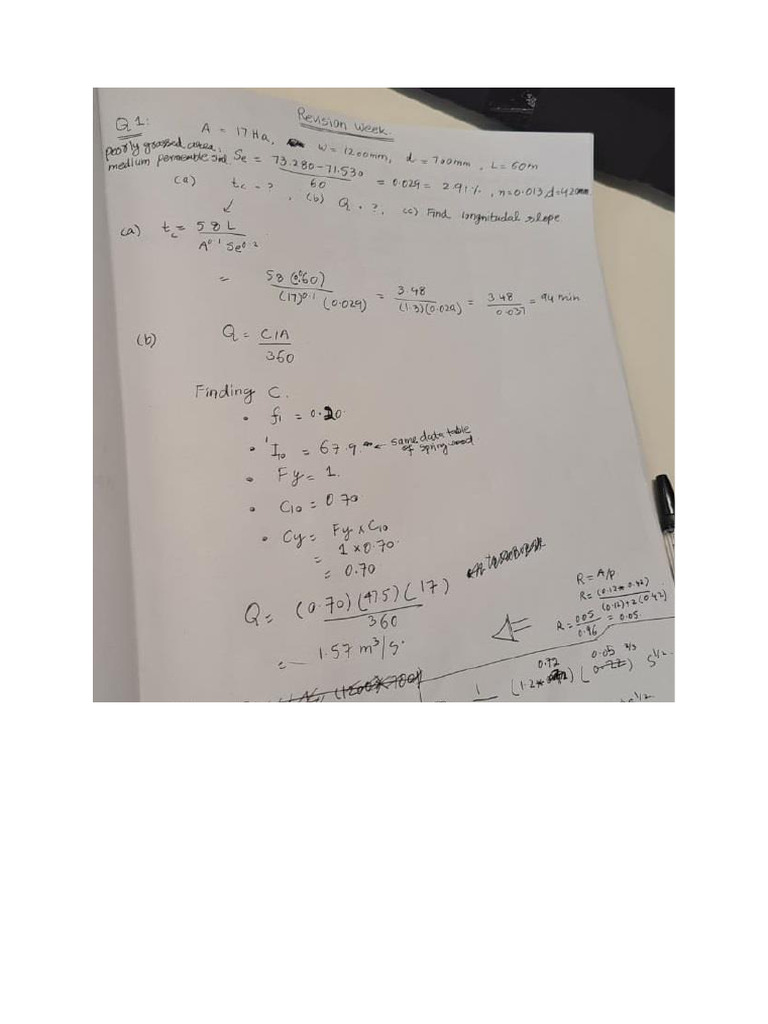 Revision Week.
Q1:
A = 17 Ha, w = 1200mm, d = 700mm, L = 60m
poorly grassed area,
medium permeable soil. Se = 73.280-71.530 / 60 = 0.029 = 2.91%, n=0.013, d=420mm
(a) tc = ?, (b) Q = ?, (c) Find longnitudal slope
(a) tc = 58L / A^0.1 Se^0.2
= 58(0.060) / (17)^0.1 (0.029) = 3.48 / (1.3)(0.029) = 3.48 / 0.037 = 94 min
(b) Q = CIA / 360
Finding C.
• f1 = 0.20.
• 'I10 = 67.9. ← same data table
of
• Fy = 1.
• C10 = 0.70
• Cy = Fy x C10
= 1 x 0.70.
= 0.70
Q = (0.70)(475)(17) / 360
= 1.57 m³/s.
R = A/P.
R = (0.12*0.42) / (0.12)+2(0.42)
R = 0.05 / 0.96 = 0.05.
0.72 0.05 2/3
1 (1.2*) (0.22) S^1/2.